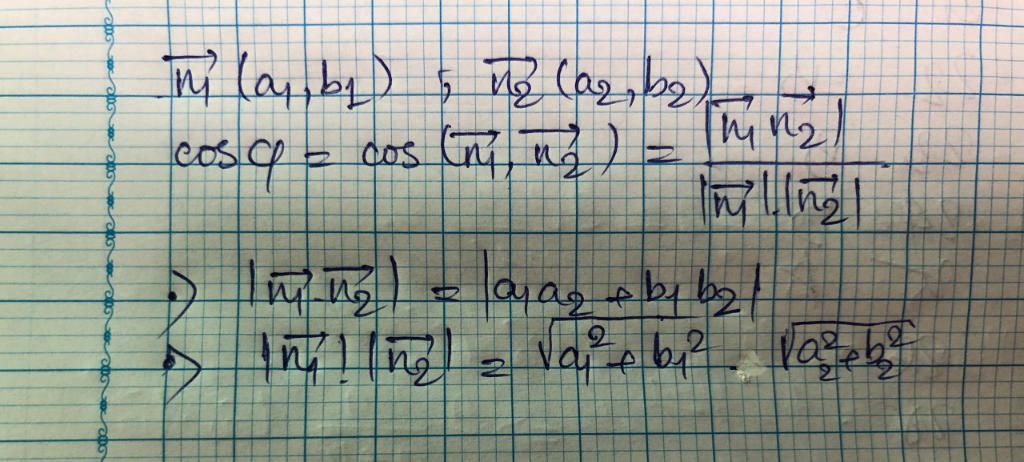 $\overrightarrow{n_1} (a_1, b_1) ; \overrightarrow{n_2} (a_2, b_2)$
$\cos \varphi = \cos (\overrightarrow{n_1}, \overrightarrow{n_2}) = \frac{|\overrightarrow{n_1} \overrightarrow{n_2}|}{|\overrightarrow{n_1}| . |\overrightarrow{n_2}|}$
$|\overrightarrow{n_1} . \overrightarrow{n_2}| = |a_1 a_2 + b_1 b_2|$
$|\overrightarrow{n_1}| . |\overrightarrow{n_2}| = \sqrt{a_1^2 + b_1^2} . \sqrt{a_2^2 + b_2^2}$